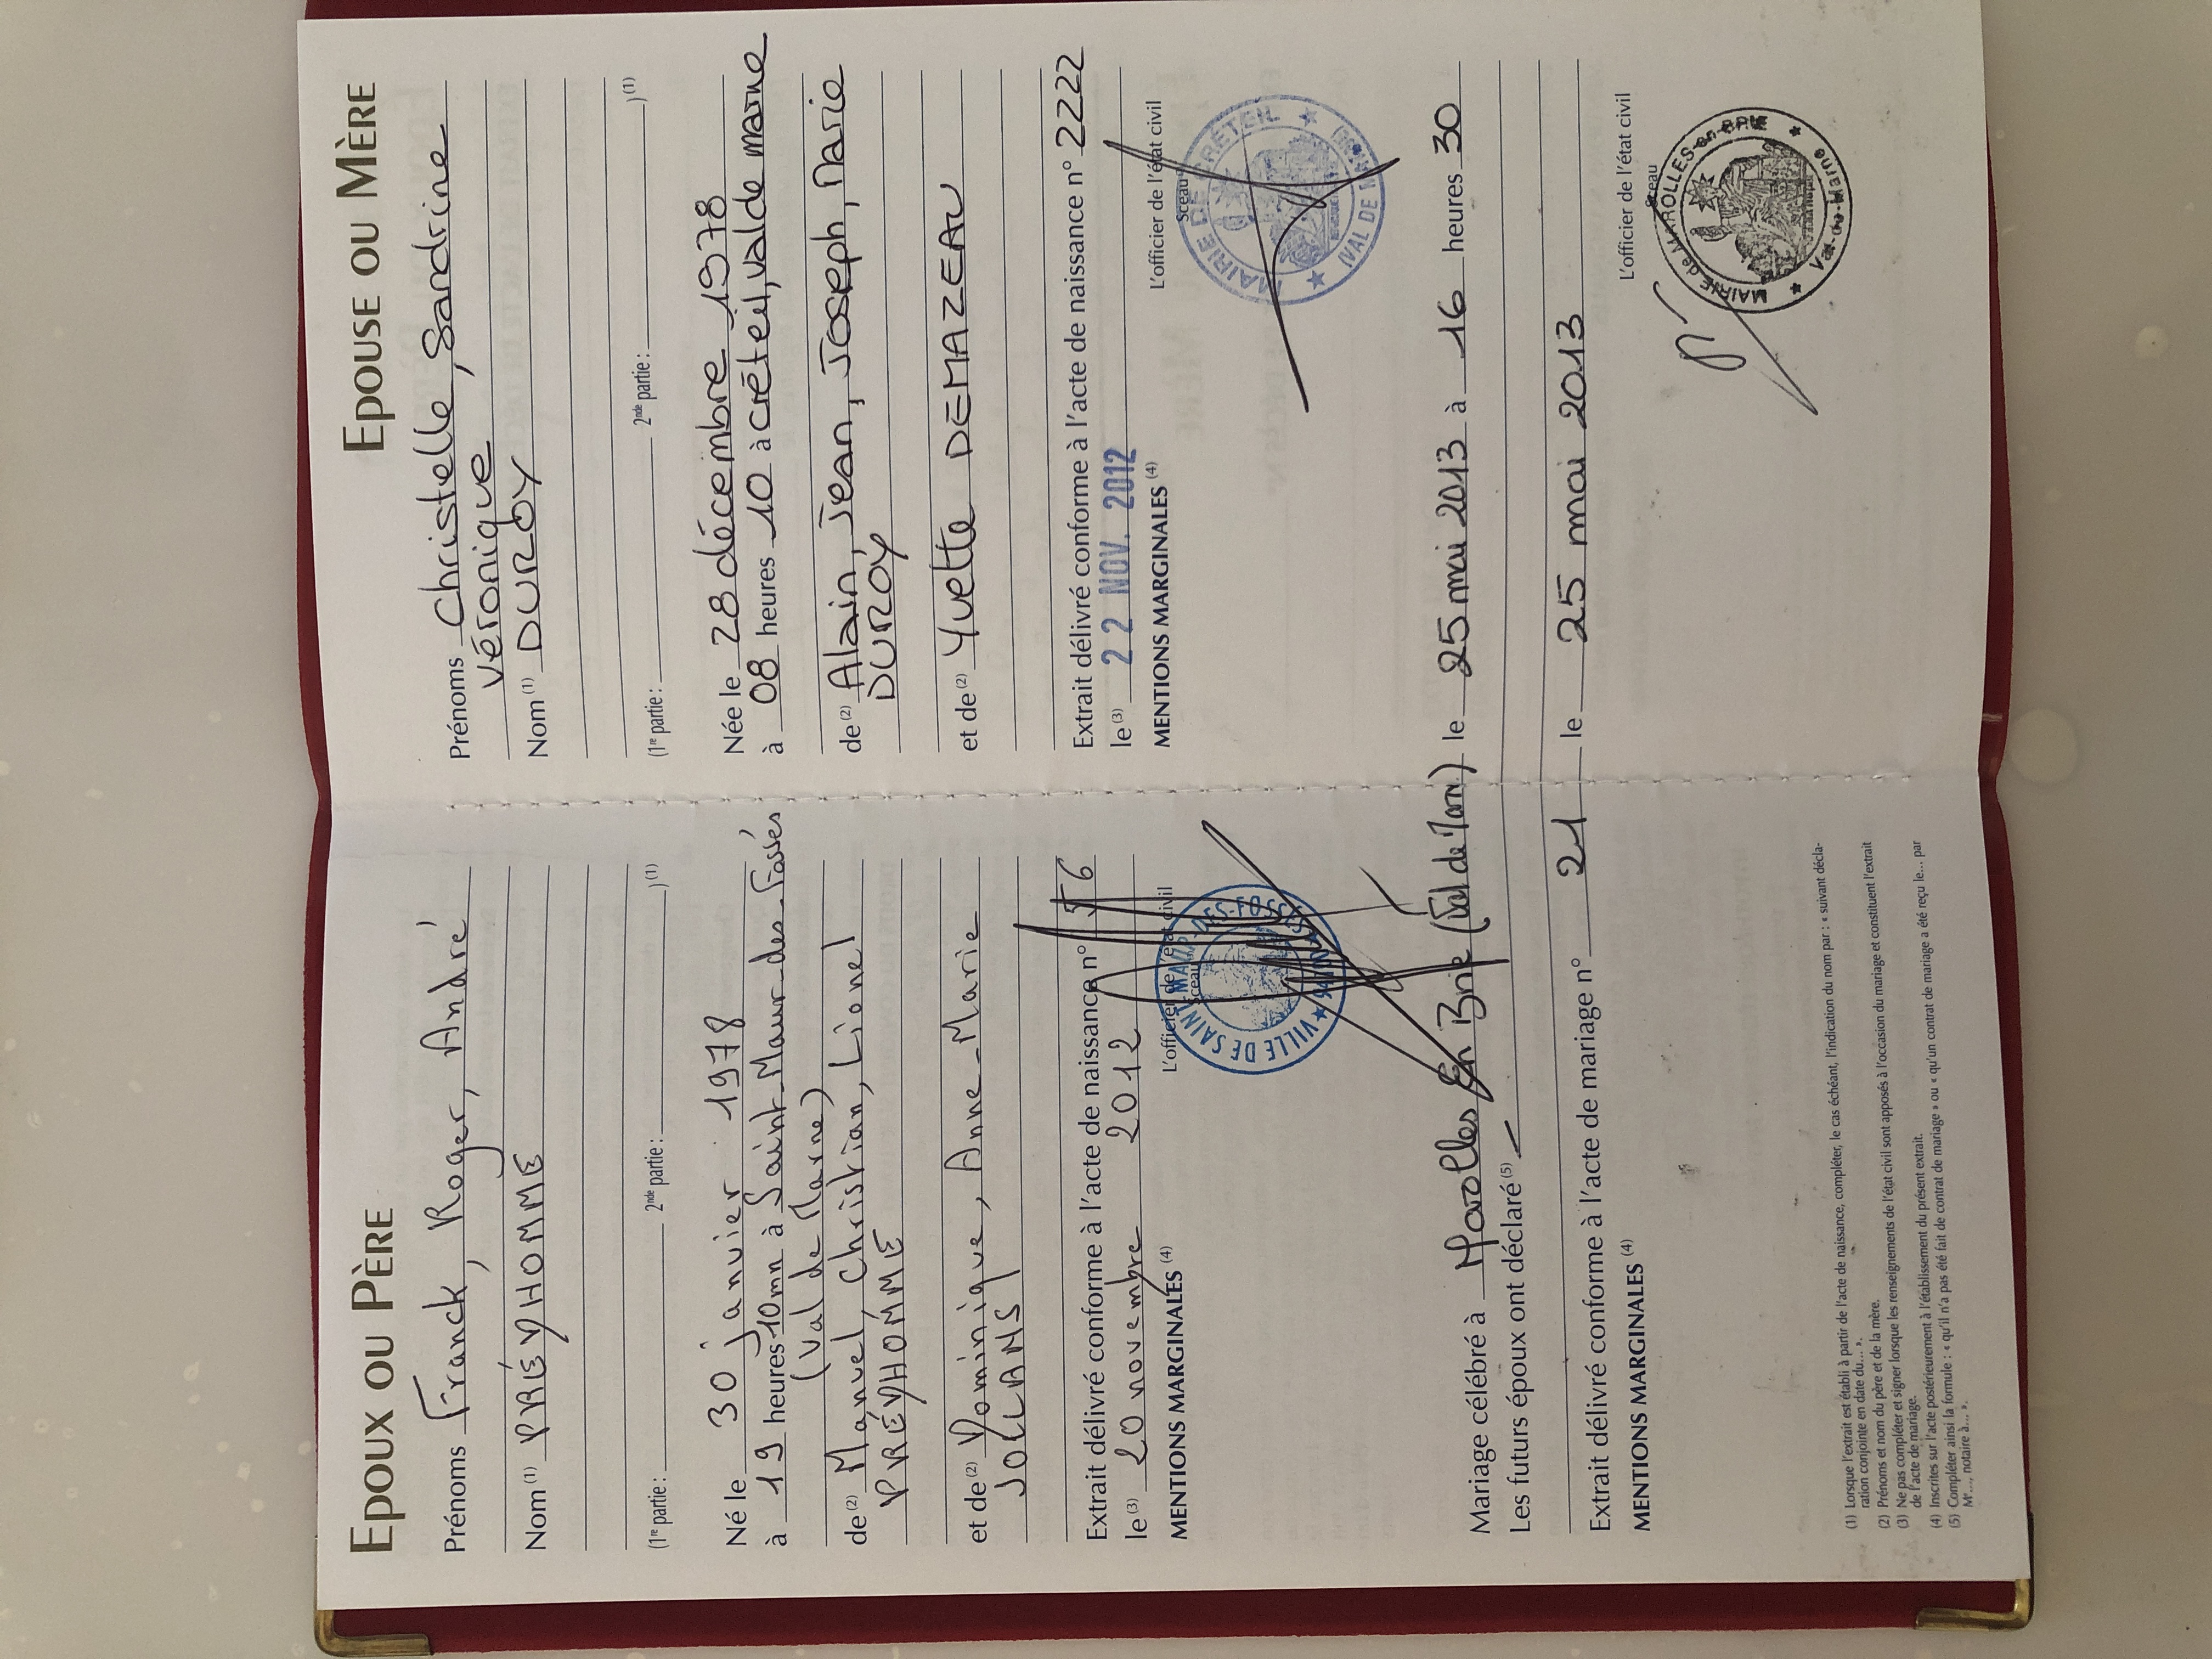 EPOUX OU PÈRE
Prénoms Franck, Roger, André
Nom (1) PRÉVHOMME
(1re partie : 2nde partie : )(1)
Né le 30 janvier 1978
à 19 heures 10mn à Saint-Maur-des-Fossés
(Val de Marne)
de (2) Manuel, Christian, Lionel
PRÉVHOMME
et de (2) Dominique, Anne-Marie
JOLLANS
Extrait délivré conforme à l'acte de naissance n° 56
le (3) 20 novembre 2012
L'officier de l'état civil
Sceau
MENTIONS MARGINALES (4)
VILLE DE SAINT-MAUR-DES-FOSSES
EPOUSE OU MÈRE
Prénoms Christelle, Sandrine
Véronique
Nom (1) DUROY
(1re partie : 2nde partie : )(1)
Née le 28 décembre 1978
à 08 heures 10 à Créteil, val de marne
de (2) Alain, Jean, Joseph, Marie
DUROY
et de (2) Yvette DEMAZEAU
Extrait délivré conforme à l'acte de naissance n° 2222
le (3) 22 NOV. 2012
L'officier de l'état civil
Sceau
MENTIONS MARGINALES (4)
MAIRIE DE CRÉTEIL
(VAL DE MARNE)
Mariage célébré à Marolles En Brie (Val de Marne) le 25 mai 2013 à 16 heures 30
Les futurs époux ont déclaré (5)
Extrait délivré conforme à l'acte de mariage n° 21 le 25 mai 2013
MENTIONS MARGINALES (4)
L'officier de l'état civil
Sceau
MAIRIE de MAROLLES-en-BRIE
Val-du-Marne
(1) Lorsque l'extrait est établi à partir de l'acte de naissance, compléter, le cas échéant, l'indication du nom par : « suivant décla-
ration conjointe en date du... ».
(2) Prénoms et nom du père et de la mère.
(3) Ne pas compléter et signer lorsque les renseignements de l'état civil sont apposés à l'occasion du mariage et constituent l'extrait
de l'acte de mariage.
(4) Inscrites sur l'acte postérieurement à l'établissement du présent extrait.
(5) Compléter ainsi la formule : « qu'il n'a pas été fait de contrat de mariage » ou « qu'un contrat de mariage a été reçu le... par
Me..., notaire à... ».